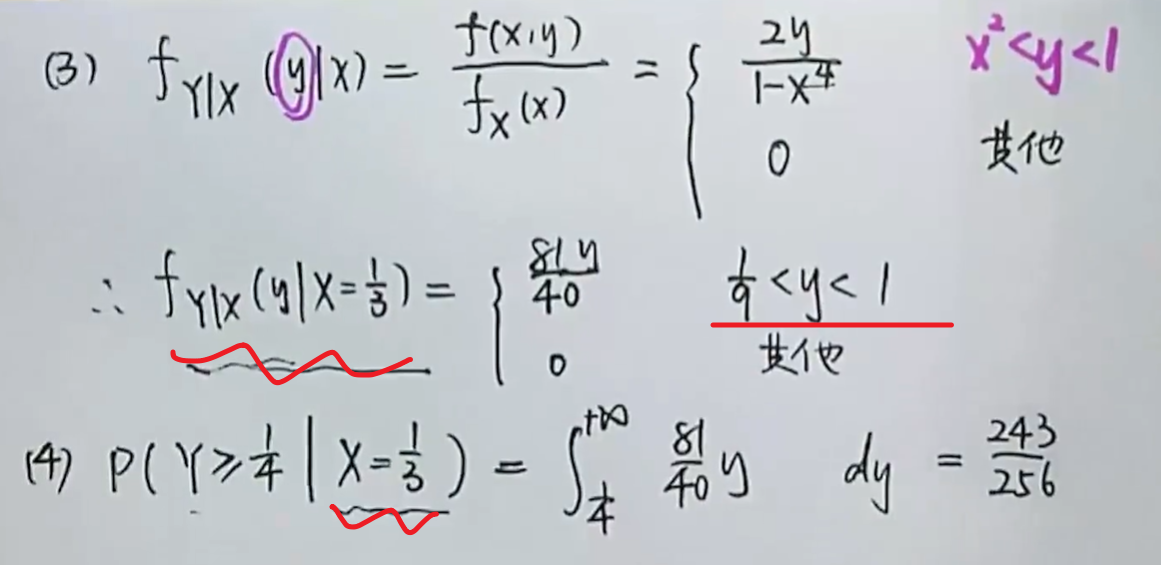 (3) f_{Y|X}(y|x) = \frac{f(x,y)}{f_X(x)} = { \frac{2y}{1-x^4} x²<y<1
0 其他
∴ f_{Y|X}(y|X=\frac{1}{3}) = { \frac{81y}{40} \frac{1}{9}<y<1
0 其他
(4) P(Y≥\frac{1}{4} | X=\frac{1}{3}) = ∫_{\frac{1}{4}}^{+∞} \frac{81}{40}y dy = \frac{243}{256}